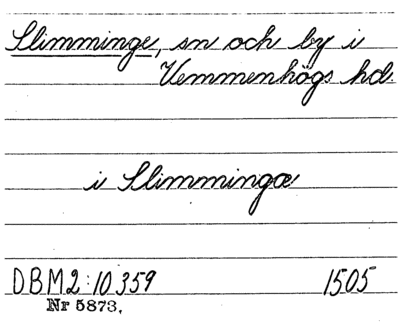 Slimminge, sn och by i
Vemmenhögs hd
i Slimmingæ
DBM2:10 359 1505
Nr 5873.